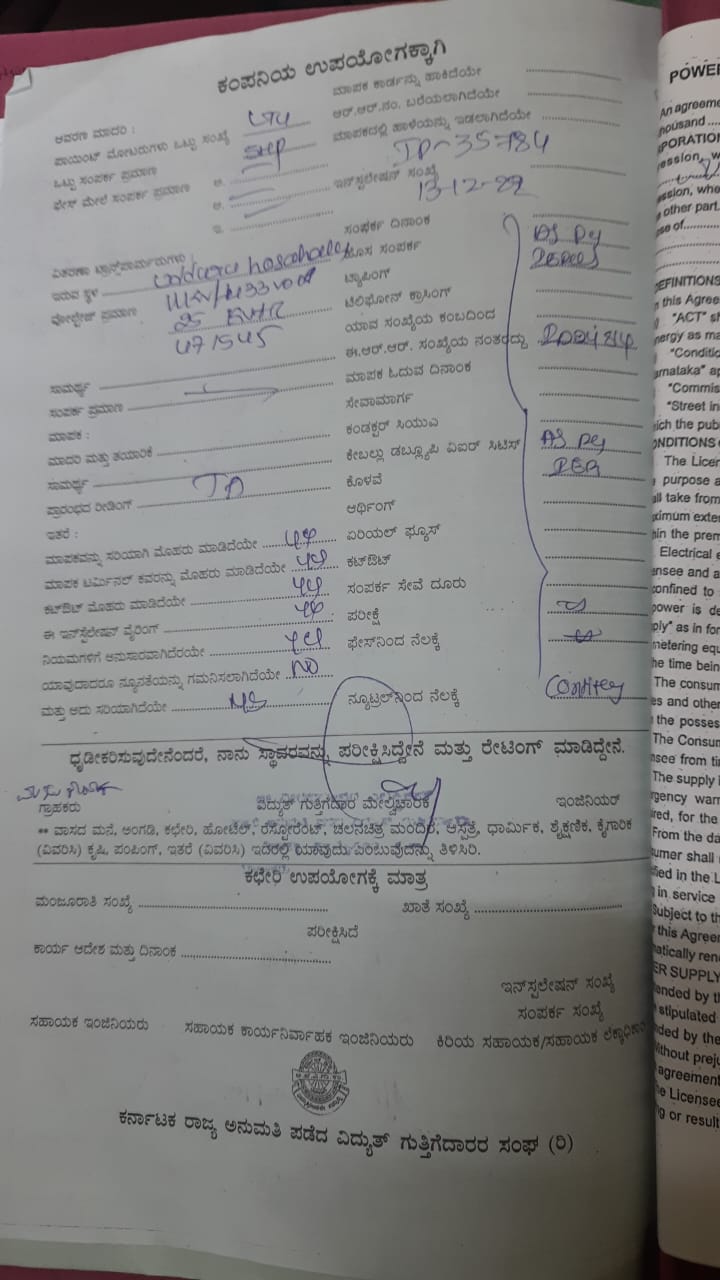 ಕಂಪನಿಯ ಉಪಯೋಗಕ್ಕಾಗಿ
ಆವರಣ ಮಾದರಿ :
ಮಾಪಕ ಕಾರ್ಡನ್ನು ಹಾಕಿದೆಯೇ
ಪಾಯಿಂಟ್ ಮೋಟರುಗಳು ಒಟ್ಟು ಸಂಖ್ಯೆ
ಆರ್.ಆರ್.ನಂ. ಬರೆಯಲಾಗಿದೆಯೇ
ಒಟ್ಟು ಸಂಪರ್ಕ ಪ್ರಮಾಣ 5HP
ಮಾಪಕದಲ್ಲಿ ಹಾಳೆಯನ್ನು ಇಡಲಾಗಿದೆಯೇ
ಫೇಸ್ ಮೇಲೆ ಸಂಪರ್ಕ ಪ್ರಮಾಣ ಅ.
IP-35784
ಇನ್‌ಸ್ಟಲೇಷನ್ ಸಂಖ್ಯೆ
ಆ.
13-12-22
ಇ.
ಸಂಪರ್ಕ ದಿನಾಂಕ As Per
ವಿತರಣಾ ಟ್ರಾನ್ಸ್‌ಫಾರ್ಮರುಗಳು :
ಹೊಸ ಸಂಪರ್ಕ
ಇರುವ ಸ್ಥಳ
ಟ್ಯಾಪಿಂಗ್
ವೋಲ್ಟೇಜ್ ಪ್ರಮಾಣ 11KV/433 Volt
ಟೆಲಿಫೋನ್ ಕ್ರಾಸಿಂಗ್
25 KVA
ಯಾವ ಸಂಖ್ಯೆಯ ಕಂಬದಿಂದ
ಈ.ಆರ್.ಆರ್. ಸಂಖ್ಯೆಯ ನಂತರದ್ದು
ಸಾಮರ್ಥ್ಯ
ಮಾಪಕ ಓದುವ ದಿನಾಂಕ
ಸಂಪರ್ಕ ಪ್ರಮಾಣ
ಸೇವಾಮಾರ್ಗ
ಮಾಪಕ :
ಕಂಡಕ್ಟರ್ ಸಿಯುವಿ
ಮಾದರಿ ಮತ್ತು ತಯಾರಿಕೆ
ಕೇಬಲ್ಲು ಡಬ್ಲ್ಯೂಪಿ ವಿಐಆರ್ ಸಿಟಿಸ್ As Per
ಸಾಮರ್ಥ್ಯ
ಕೊಳವೆ
ಪ್ರಾರಂಭದ ರೀಡಿಂಗ್
ಆರ್ಥಿಂಗ್
ಇತರೆ :
ಏರಿಯಲ್ ಫ್ಯೂಸ್
ಮಾಪಕವನ್ನು ಸರಿಯಾಗಿ ಮೊಹರು ಮಾಡಿದೆಯೇ
ಕಟ್‌ಔಟ್
ಮಾಪಕ ಟರ್ಮಿನಲ್ ಕವರನ್ನು ಮೊಹರು ಮಾಡಿದೆಯೇ
ಸಂಪರ್ಕ ಸೇವೆ ದೂರು
ಕಟ್‌ಔಟ್ ಮೊಹರು ಮಾಡಿದೆಯೇ
ಪರೀಕ್ಷೆ
ಈ ಇನ್‌ಸ್ಟಲೇಷನ್ ವೈರಿಂಗ್
ಫೇಸ್‌ನಿಂದ ನೆಲಕ್ಕೆ
ನಿಯಮಗಳಿಗೆ ಅನುಸಾರವಾಗಿದೆರಯೇ yes
ಯಾವುದಾದರೂ ನ್ಯೂನತೆಯನ್ನು ಗಮನಿಸಲಾಗಿದೆಯೇ NO
ಮತ್ತು ಅದು ಸರಿಯಾಗಿದೆಯೇ
ನ್ಯೂಟ್ರಲ್‌ನಿಂದ ನೆಲಕ್ಕೆ
ಧೃಡೀಕರಿಸುವುದೇನೆಂದರೆ, ನಾನು ಸ್ಥಾವರವನ್ನು ಪರೀಕ್ಷಿಸಿದ್ದೇನೆ ಮತ್ತು ರೇಟಿಂಗ್ ಮಾಡಿದ್ದೇನೆ.
ಗ್ರಾಹಕರು
ವಿದ್ಯುತ್ ಗುತ್ತಿಗೆದಾರ ಮೇಲ್ವಿಚಾರಕ
ಇಂಜಿನಿಯರ್
** ವಾಸದ ಮನೆ, ಅಂಗಡಿ, ಕಛೇರಿ, ಹೋಟೆಲ್, ರೆಸ್ಟೋರೆಂಟ್, ಚಲನಚಿತ್ರ ಮಂದಿರ, ಆಸ್ಪತ್ರೆ, ಧಾರ್ಮಿಕ, ಶೈಕ್ಷಣಿಕ, ಕೈಗಾರಿಕ
(ವಿವರಿಸಿ) ಕೃಷಿ, ಪಂಪಿಂಗ್, ಇತರೆ (ವಿವರಿಸಿ) ಇದರಲ್ಲಿ ಯಾವುದು ಎಂಬುವುದನ್ನು ತಿಳಿಸಿರಿ.
ಕಛೇರಿ ಉಪಯೋಗಕ್ಕೆ ಮಾತ್ರ
ಮಂಜೂರಾತಿ ಸಂಖ್ಯೆ
ಖಾತೆ ಸಂಖ್ಯೆ
ಪರೀಕ್ಷಿಸಿದೆ
ಕಾರ್ಯ ಆದೇಶ ಮತ್ತು ದಿನಾಂಕ
ಇನ್‌ಸ್ಟಲೇಷನ್ ಸಂಖ್ಯೆ
ಸಂಪರ್ಕ ಸಂಖ್ಯೆ
ಸಹಾಯಕ ಇಂಜಿನಿಯರು
ಸಹಾಯಕ ಕಾರ್ಯನಿರ್ವಾಹಕ ಇಂಜಿನಿಯರು
ಕಿರಿಯ ಸಹಾಯಕ/ಸಹಾಯಕ ಲೆಕ್ಕಾಧಿಕಾರಿ
ಕರ್ನಾಟಕ ರಾಜ್ಯ ಅನುಮತಿ ಪಡೆದ ವಿದ್ಯುತ್ ಗುತ್ತಿಗೆದಾರರ ಸಂಘ (ರಿ)
POWER
An agreeme
housand
PORATION
ession, w
ssion, whe
other part.
se of
DEFINITIONS
this Agree
"ACT" s
nergy as ma
"Conditio
arnataka" ap
"Commis
"Street in
ich the pub
ONDITIONS
The Licen
purpose a
all take from
ximum exter
hin the prem
Electrical e
ensee and a
confined to
power is de
ply" as in for
metering equ
he time bein
The consum
es and other
the posses
The Consum
nsee from tir
The supply
rgency warr
red, for the
From the da
umer shall
fied in the L
in service
Subject to th
this Agreer
natically ren
ER SUPPLY
ended by th
stipulated
ded by the
Without prej
agreement
e Licensee
g or result